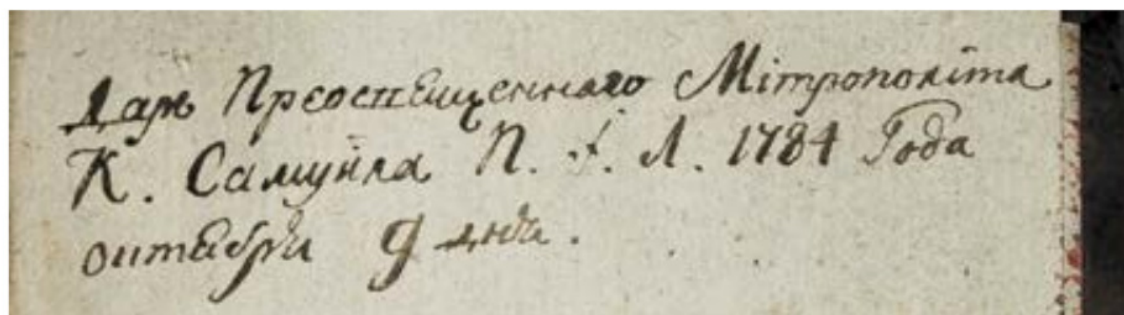 Даръ Преосвещеннаго Мітрополіта
К. Самуила П. І. Л. 1784 Года
октября 9 дня.